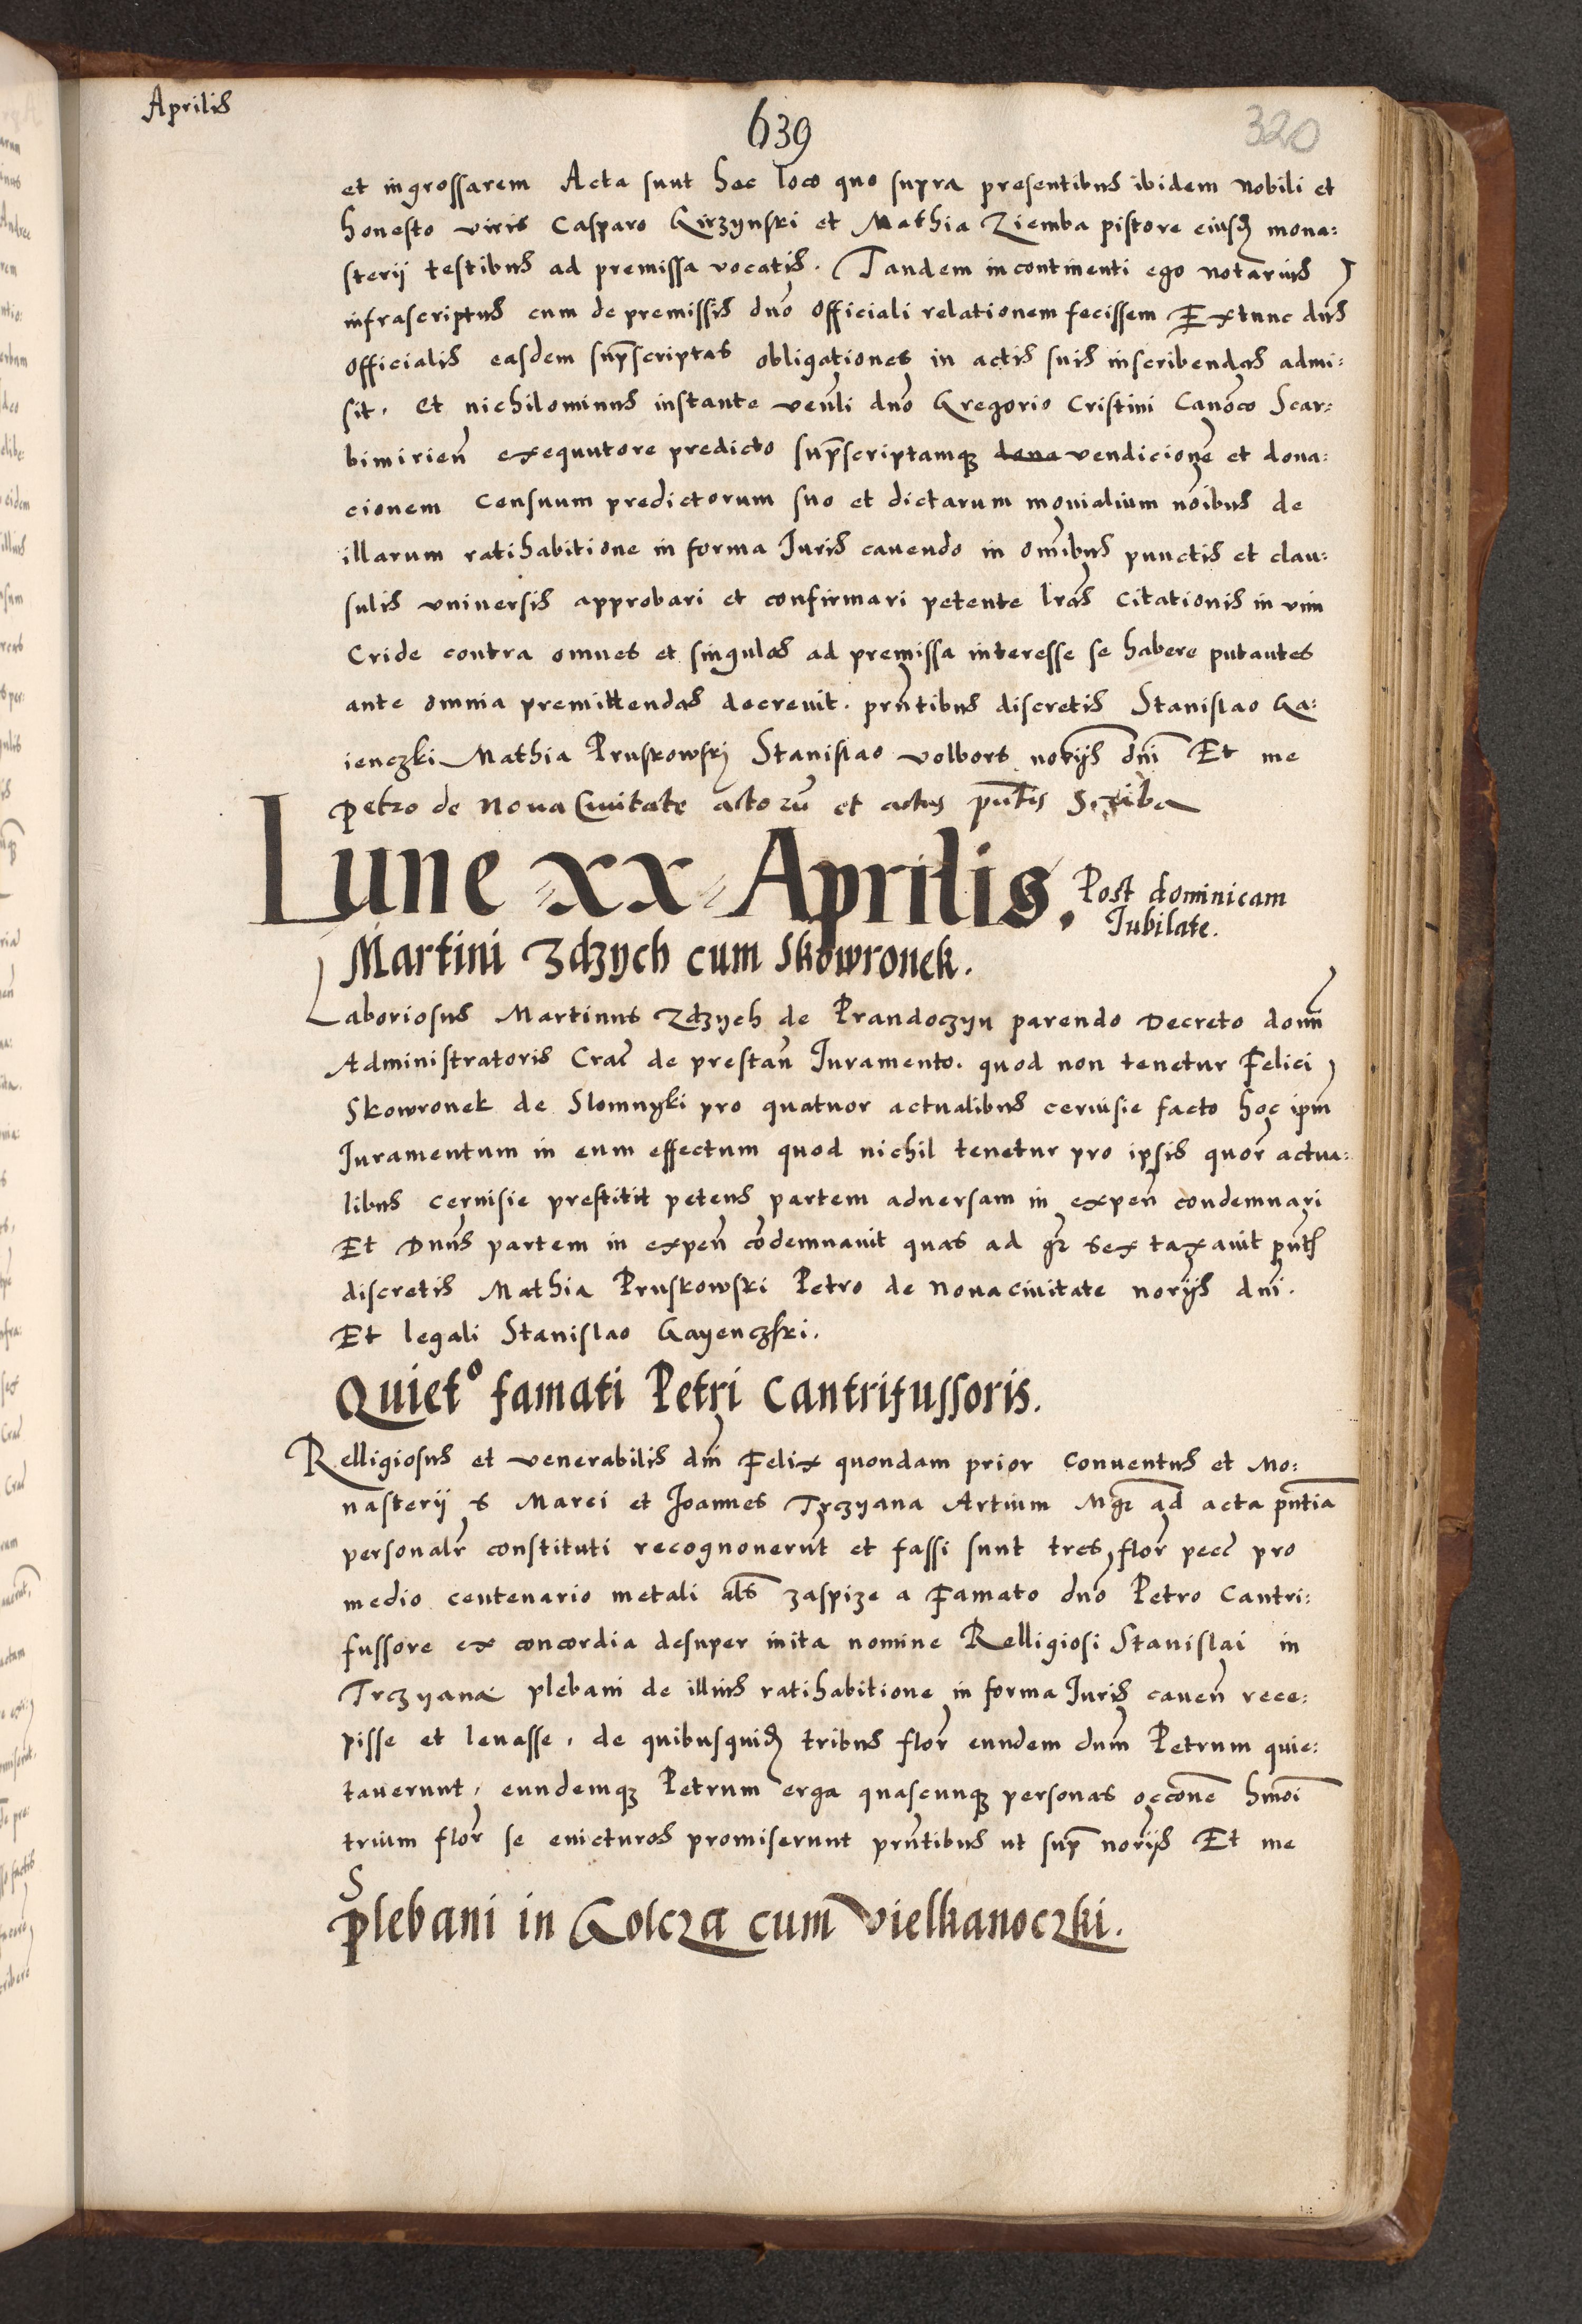 Aprilis
639
320
et ingrossarem Acta sunt hoc loco quo supra presentibus ibidem nobili et
honesto viris Casparo Kirzynski et Mathia Ziemba pistore eiusd mona:
sterij testibus ad premissa vocatis. Tandem incontinenti ego notarius
infrascriptus cum de premissis dno officiali relationem fecissem Extunc dns
officialis easdem supscriptas obligationes in actis suis inscribendas admi:
sit. Et nichilominus instante venli dno Gregorio Cristini Canoco Scar:
bimirien exequutore predicto supscriptamq dona vendicione et dona:
cionem censuum predictorum suo et dictarum monialium noibus de
illarum ratihabitione in forma Juris cavendo in omibus punctis et clau:
sulis universis approbari et confirmari petente lras citationis in vim
Cride contra omnes et singulos ad premissa interesse se habere putantes
ante omnia premittendas decrevit. prntibus discretis Stanislao Ga:
ienczki Mathia Pruskowskj Stanislao volbors norijs dni Et me
Petro de Nova Civitate actorū et actus pntis Scriba
Lune xx Aprilis. Post dominicam
Jubilate.
Martini Zdzych cum Skowronek.
Laboriosus Martinus Zdzych de Prandoczyn parendo Decreto domn
Administratoris Crac de prestan Juramento. quod non tenetur Felici
Skowronek de Slomnyki pro quatuor actualibus cerviisie facto hoc ipm
Juramentum in eum effectum quod nichil tenetur pro ipsis quor actua:
libus cervisie prestitit petens partem adversam in expen condemnari
Et Dnus partem in expen codemnavit quas ad gr sex taxavit pnt
discretis Mathia Pruskowski Petro de Nova civitate norijs dni.
Et legali Stanislao Gayenczki.
Quietº famati Petri Cantrifussoris.
Relligiosus et venerabilis dni Felix quondam prior Conventus et Mo:
nasterij S Marci et Joannes Trczyana Artium Mgr ad acta pntia
personalr constituti recognoverut et fassi sunt tres flor pecc pro
medio centenario metali als zaspize a Famato dno Petro Cantri:
fussore ex concordia desuper inita nomine Relligiosi Stanislai in
Trczyana plebani de illius ratihabitione in forma Juris caven rece:
pisse et levasse, de quibusquid tribus flor eundem dum Petrum quie:
taverunt, eundemq Petrum erga quascunq personas occone hmoi
trium flor se evicturos promiserunt prntibus ut sup norijs Et me
S
Plebani in Golcza cum Vielkanoczki.